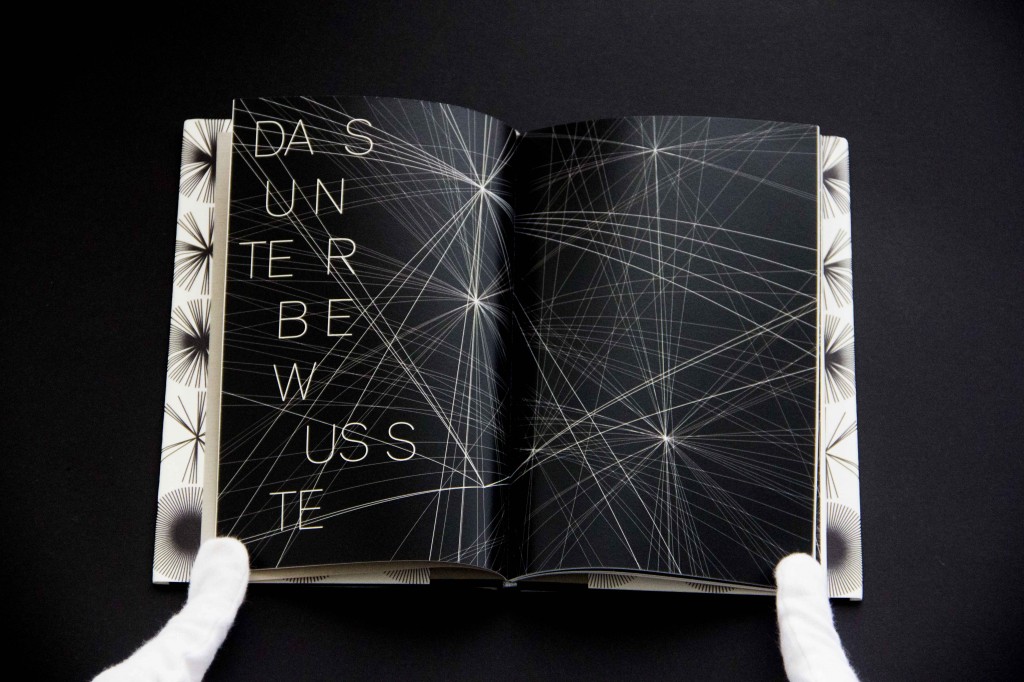 DA S
UN
TE R
BE
W
USS
TE